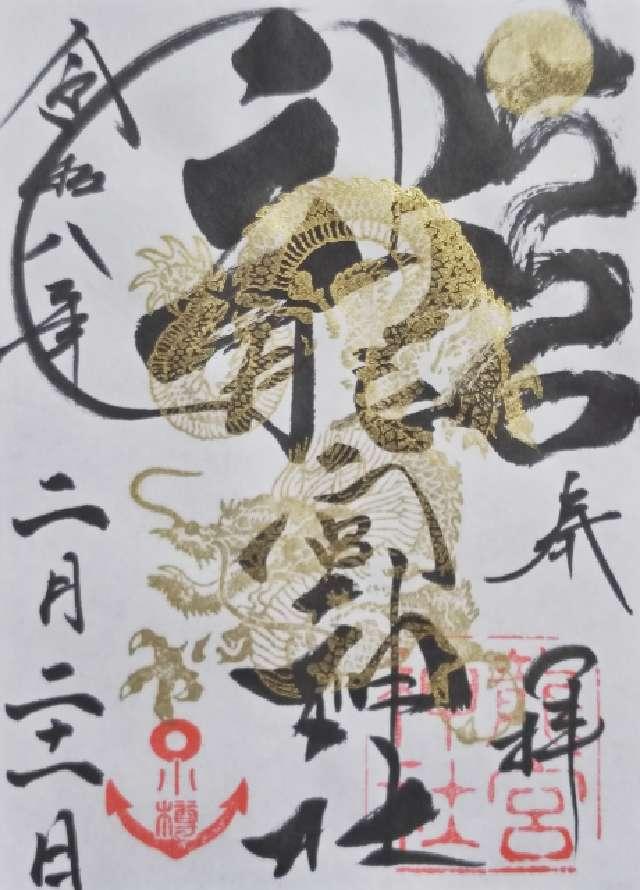 奉拝
龍宮神社
龍宮
神社
小樽
令和八年
二月二十一日